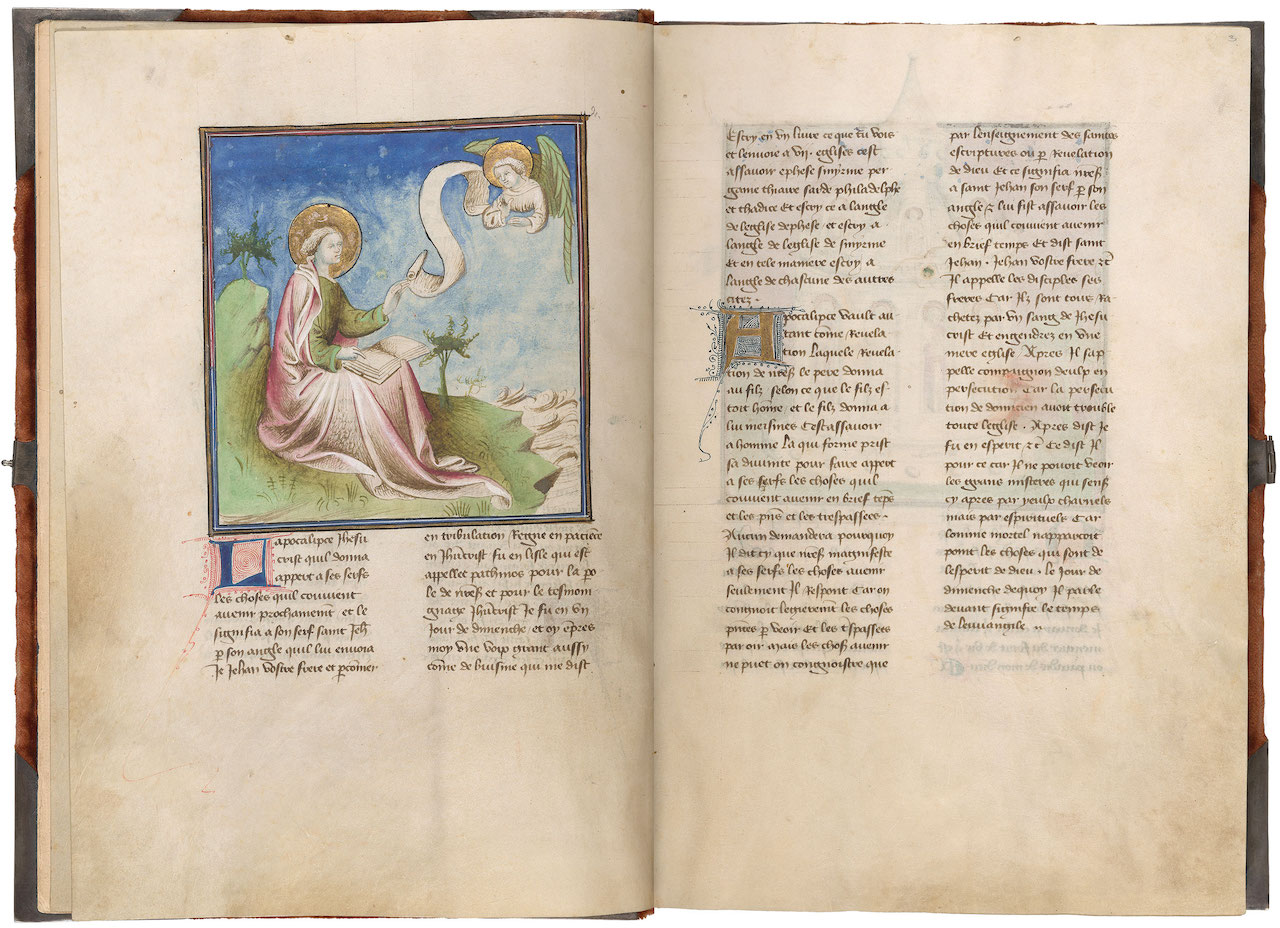 Lapocalipce Jhesu
crist quil donna
appert a ses serfs
les choses quil couuient
auenir prochainemt et le
signifia a son serf saint Jeh
p son angle quil lui enuoia
Je Jehan vostre frere et pconer
en tribulation Regne en pacience
en Jhucrist fu en lisle qui est
appellee pathmos pour la po
le de nres et pour le tesmon
gnage Jhucrist Je fu en vn
Jour de dimenche et oy empres
moy vne voix grant aussy
come de buisine qui me dist
Escry en vn liure ce que tu vois
et lenuoie a vii. eglises cest
assauoir ephese smyrme per
game thiaure sarde philadelphe
et thadice Et escry ce a langle
de leglise dephese et escry a
langle de leglise de smyrme
Et en tele maniere escry a
langle de chascune des autres
citez.
Apocalipce vault au
tant come Reuela
tion Laquele Reuela
tion de nres le pere donna
au filz selon ce que le filz es
toit home et le filz donna a
lui meismes Cestassauoir
a homme La qui forme prist
sa diuinite pour faire appert
a ses serfs les choses quil
couuient auenir en brief teps
et les pns et les trespassees.
Aucun demandera pourquoy
Il dit cy que nres magnifeste
a ses serfs les choses auenir
seulement Il Respont Car on
congnoit legierement les choses
pntes p veoir Et les tspassees
par oir mais les chos auenir
ne puet on congnoistre que
par lenseignement des saintes
escriptures ou p Reuelation
de dieu Et ce signifia nres
a saint Jehan son serf p son
angle &amp; lui fist assauoir les
choses quil couuient auenir
en brief temps Et dist saint
Jehan. Jehan vostre frere &amp;c
Il appelle les disciples ses
freres Car Ilz sont tous Ra
chetez par vn sang de Jhesu
crist Et engendrez en vne
mere eglise Apres Il sap
pelle compaignon deulx en
persecution Car la persecu
tion de domicien auoit trouble
toute leglise. Apres dist Je
fu en esperit &amp;c Ce dist Il
pour ce car Il ne pouoit veoir
les grans misteres qui sens
cy apres par yeulx charnels
mais par espirituels Car
lomme mortel napparcoit
point les choses qui sont de
lesperit de dieu. le Jour de
dimenche dequoy Il parle
deuant signifie le temps
de leuuangile